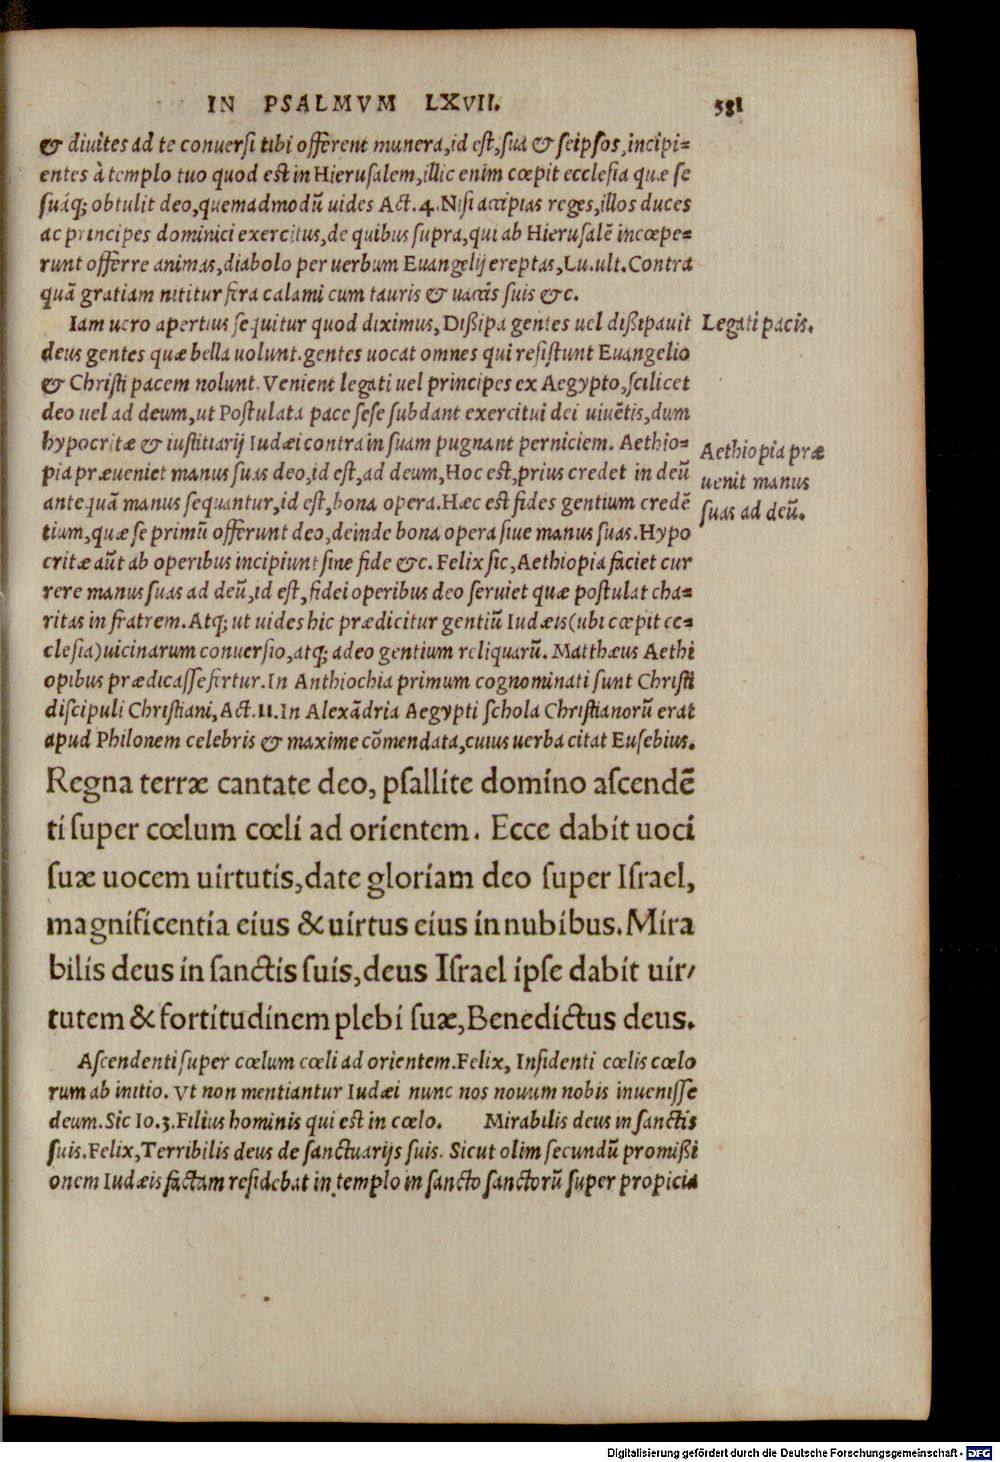 IN PSALMVM LXVII. 531
& diuites ad te conuersi tibi offerent munera, id est, sua & seipsos, incipi=
entes à templo tuo quod est in Hierusalem, illic enim cœpit ecclesia quæ se
suáq; obtulit deo, quemadmodũ uides Act. 4. Nisi accipias reges, illos duces
ac principes dominici exercitus, de quibus supra, qui ab Hierusalẽ incœpe=
runt offerre animas, diabolo per uerbum Euangelij ereptas, Lu. ult. Contra
quã gratiam nititur fera calami cum tauris & uaccis suis &c.
Iam uero apertius sequitur quod diximus, Dißipa gentes uel dißipauit
Legati pacis.
deus gentes quæ bella uolunt. gentes uocat omnes qui resistunt Euangelio
& Christi pacem nolunt. Venient legati uel principes ex Aegypto, scilicet
deo uel ad deum, ut Postulata pace sese subdant exercitui dei uiuẽtis, dum
hypocritæ & iustitiarij Iudæi contra in suam pugnant perniciem. Aethio=
Aethiopia præ
pia præueniet manus suas deo, id est, ad deum, Hoc est, prius credet in deũ
uenit manus
antequã manus sequantur, id est, bona opera. Hæc est fides gentium credẽ
suas ad deũ.
tium, quæ se primũ offerunt deo, deinde bona opera siue manus suas. Hypo
critæ aũt ab operibus incipiunt sine fide &c. Felix sic, Aethiopia faciet cur
rere manus suas ad deũ, id est, fidei operibus deo seruiet quæ postulat cha=
ritas in fratrem. Atq; ut uides hic prædicitur gentiũ Iudæis (ubi cœpit ec=
clesia) uicinarum conuersio, atq; adeo gentium reliquarũ. Matthæus Aethi
opibus prædicasse fertur. In Anthiochia primum cognominati sunt Christi
discipuli Christiani, Act. 11. In Alexãdria Aegypti schola Christianorũ erat
apud Philonem celebris & maxime cõmendata, cuius uerba citat Eusebius.
Regna terræ cantate deo, psallite domino ascendẽ
ti super cœlum cœli ad orientem. Ecce dabit uoci
suæ uocem uirtutis, date gloriam deo super Israel,
magnificentia eius & uirtus eius in nubibus. Mira
bilis deus in sanctis suis, deus Israel ipse dabit uir/
tutem & fortitudinem plebi suæ, Benedictus deus.
Ascendenti super cœlum cœli ad orientem. Felix, Insidenti cœlis cœlo
rum ab initio. Vt non mentiantur Iudæi nunc nos nouum nobis inuenisse
deum. Sic Io. 3. Filius hominis qui est in cœlo. Mirabilis deus in sanctis
suis. Felix, Terribilis deus de sanctuarijs suis. Sicut olim secundũ promißi
onem Iudæis factam residebat in templo in sancto sanctorũ super propicia
Digitalisierung gefördert durch die Deutsche Forschungsgemeinschaft - DFG